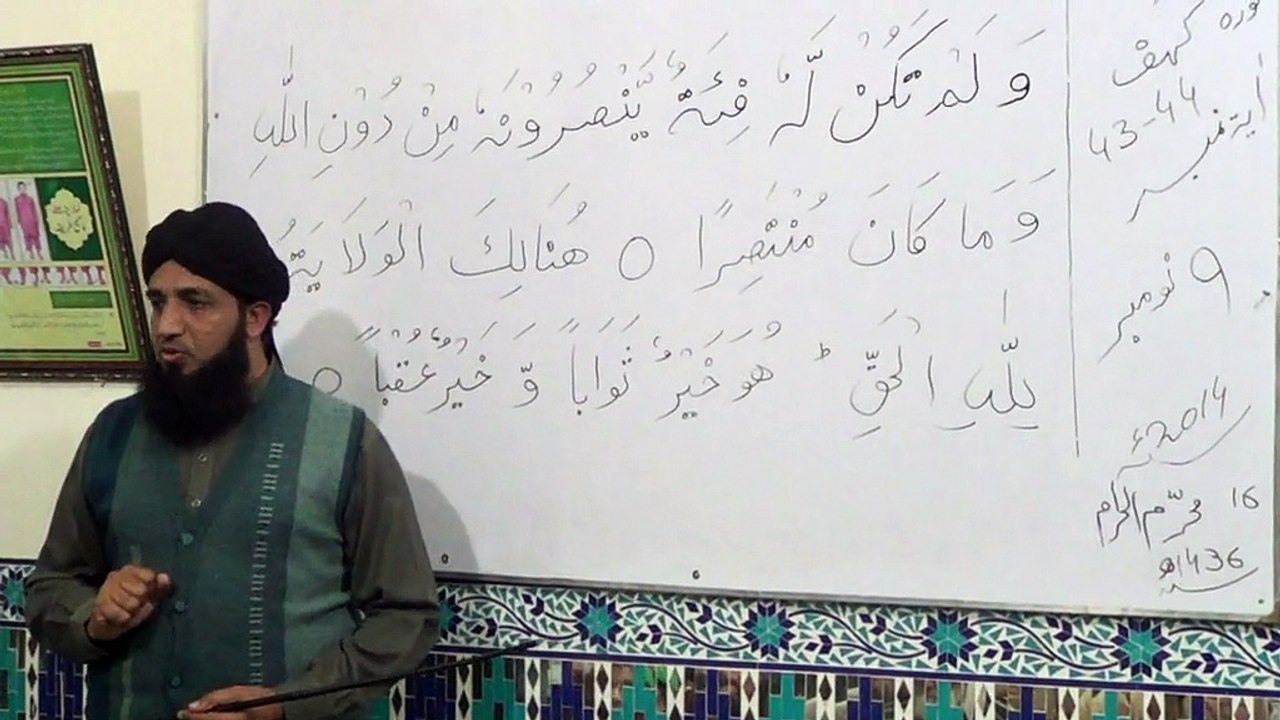 وَلَمْ تَكُنْ لَّهٗ فِئَةٌ يَّنْصُرُوْنَهٗ مِنْ دُوْنِ اللّٰهِ
وَمَا كَانَ مُنْتَصِرًا ○ هُنَالِكَ الْوَلَايَةُ
لِلّٰهِ الْحَقِّ ؕ هُوَ خَيْرٌ ثَوَابًا وَّ خَيْرٌ عُقْبًا ○
سورہ کہف
آیۃ نمبر 43-44
۹ نومبر
2014ء
16 محرّم الحرام
1436ھ